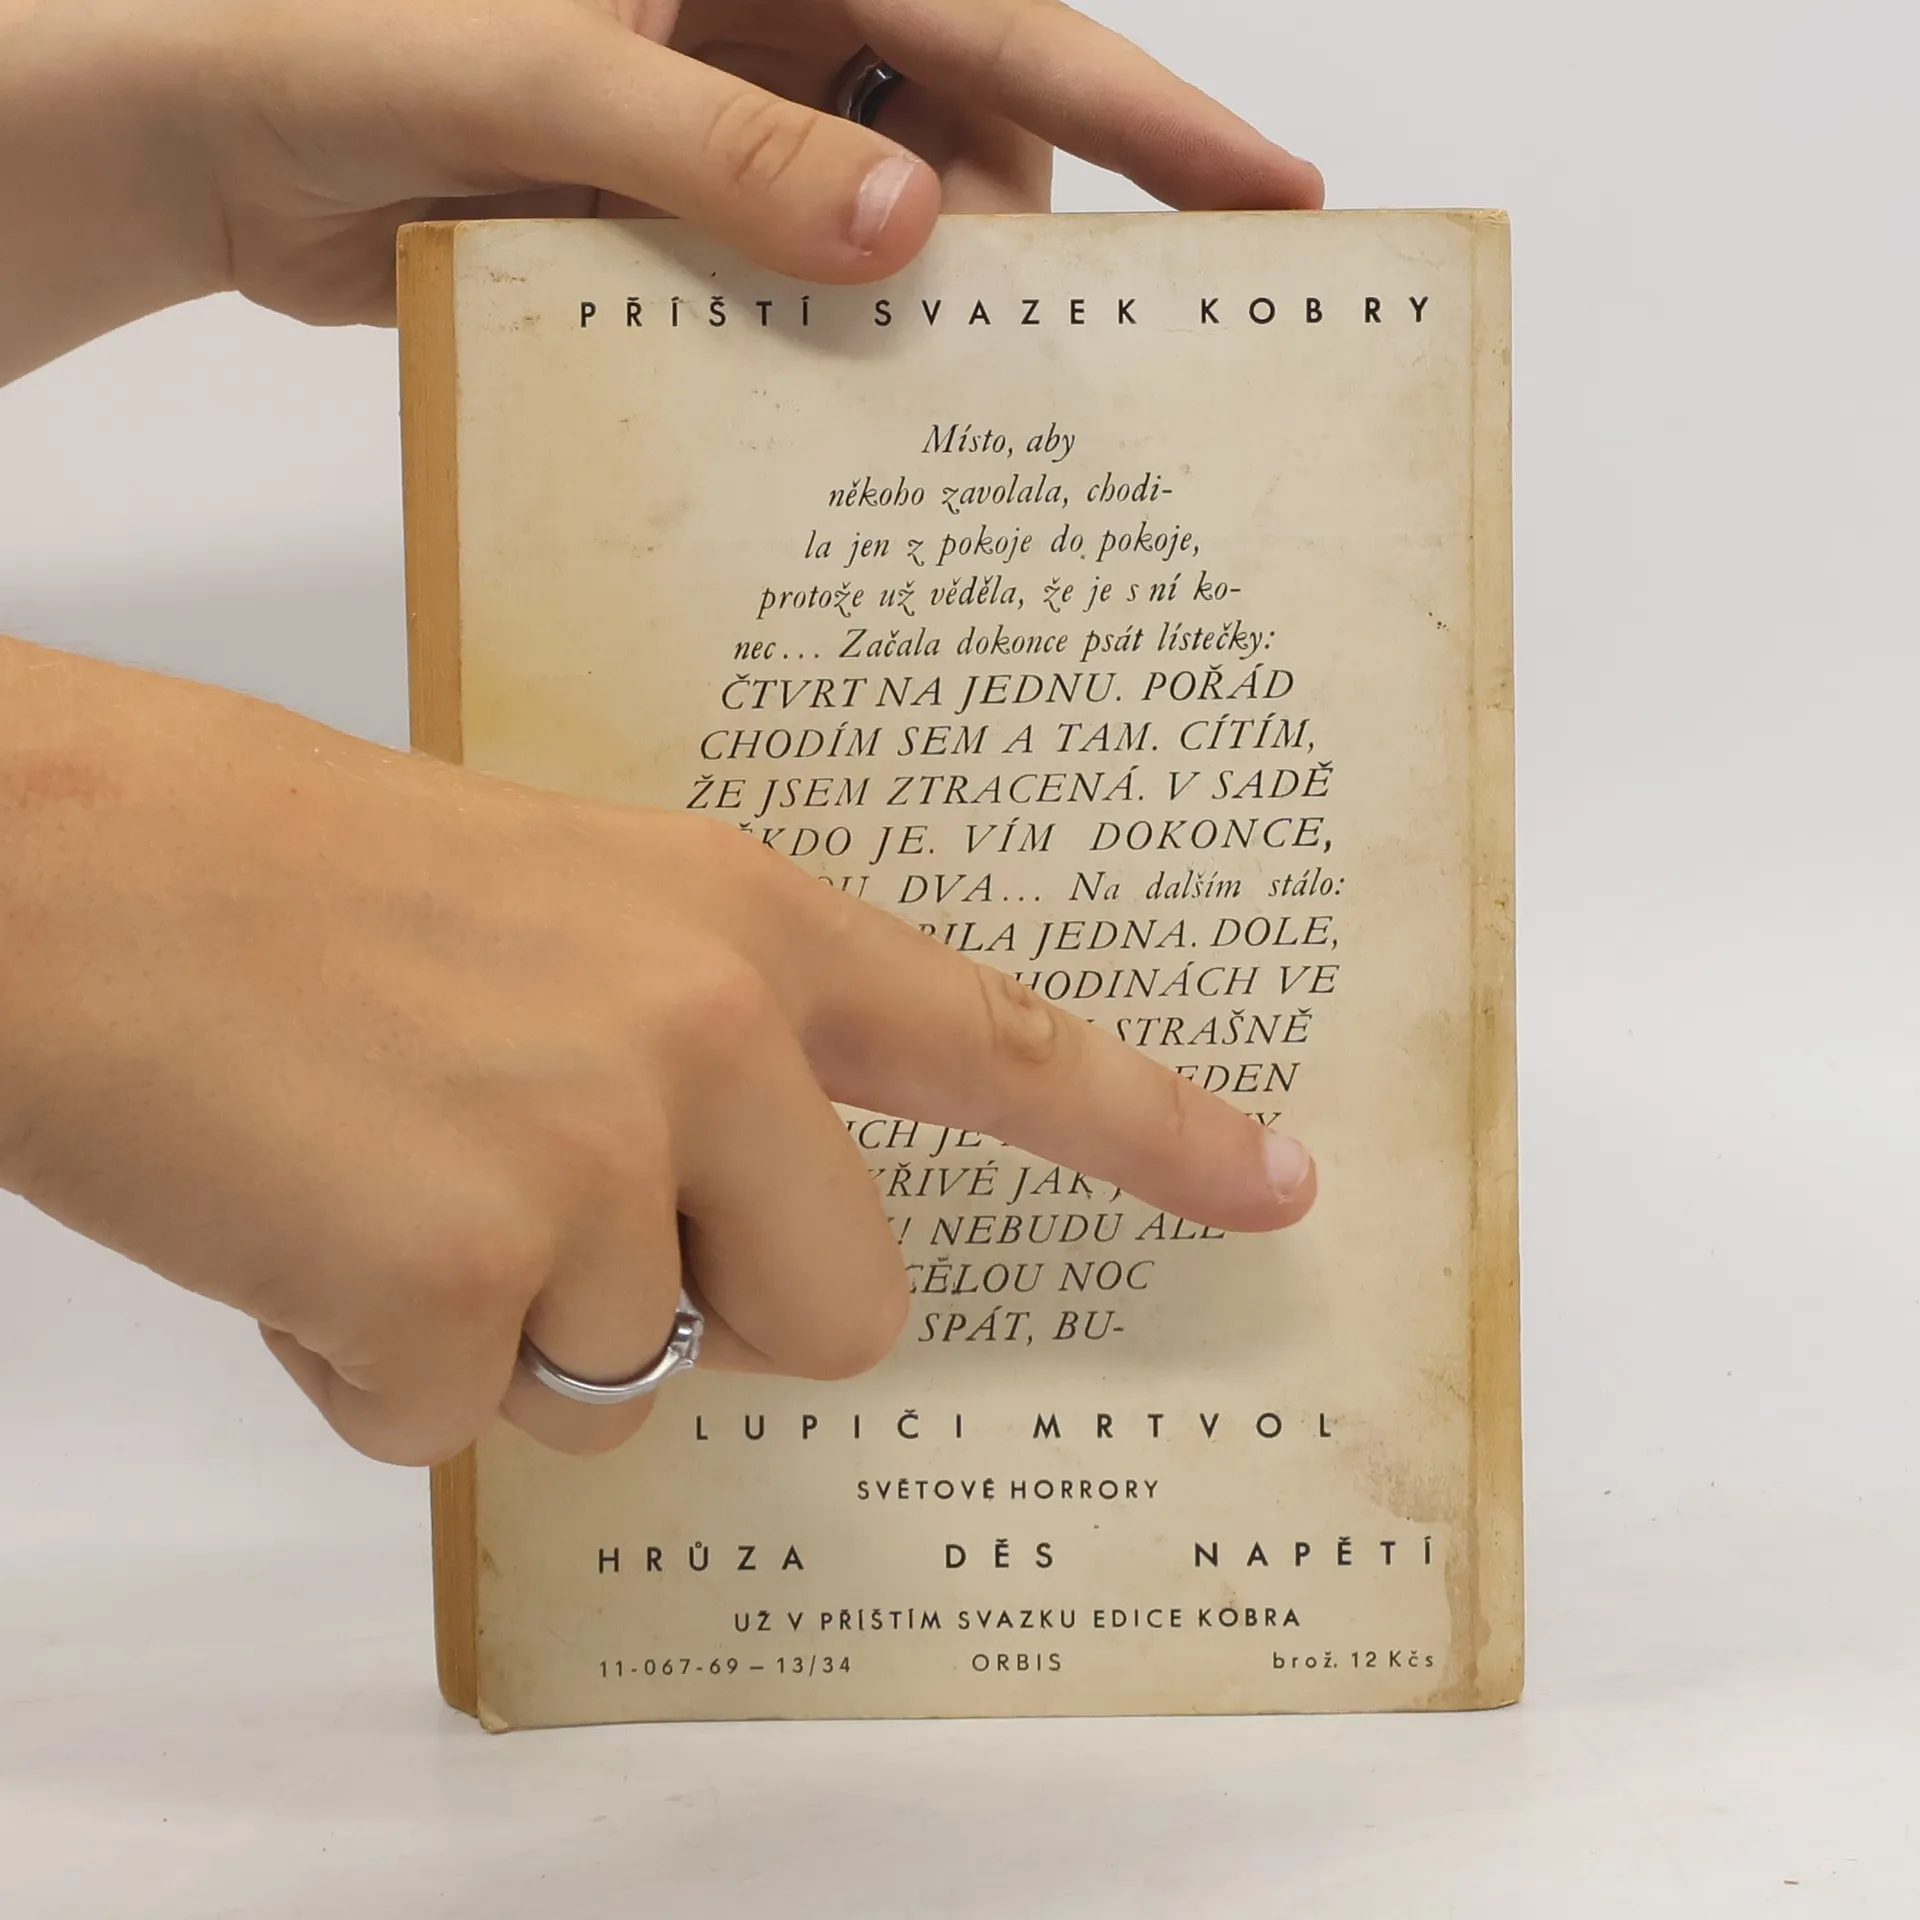 PŘÍŠTÍ SVAZEK KOBRY
Místo, aby
někoho zavolala, chodi-
la jen z pokoje do pokoje,
protože už věděla, že je s ní ko-
nec... Začala dokonce psát lístečky:
ČTVRT NA JEDNU. POŘÁD
CHODÍM SEM A TAM. CÍTÍM,
ŽE JSEM ZTRACENÁ. V SADĚ
JE. VÍM DOKONCE,
DVA... Na dalším stálo:
JEDNA. DOLE,
HODINÁCH VE
STRAŠNĚ
JE
KŘIVÉ JAK
NEBUDU ALE
CELOU NOC
SPÁT, BU-
LUPIČI MRTVOL
SVĚTOVÉ HORRORY
HRŮZA DĚS NAPĚTÍ
UŽ V PŘÍŠTÍM SVAZKU EDICE KOBRA
11-067-69 – 13/34 ORBIS brož. 12 Kčs